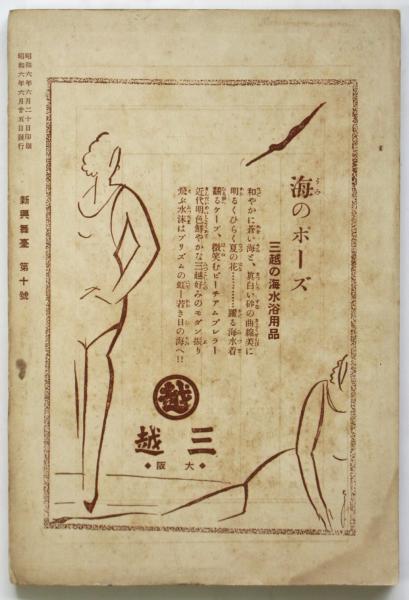 海のポーズ
うみ
三越の海水浴用品
和やかに蒼い海と、真白い砂の曲線美に
明るくひらく夏の花…………躍る海水着
翻るケープ、微笑むビーチアムブレラー
近代明色鮮やかな三越好みのモダン振り
飛ぶ水沫はプリズムの虹ー若き日の海へ!!
越
三越
◆大阪◆
昭和六年六月二十日印刷
昭和六年六月廿五日発行
新興舞臺 第十號